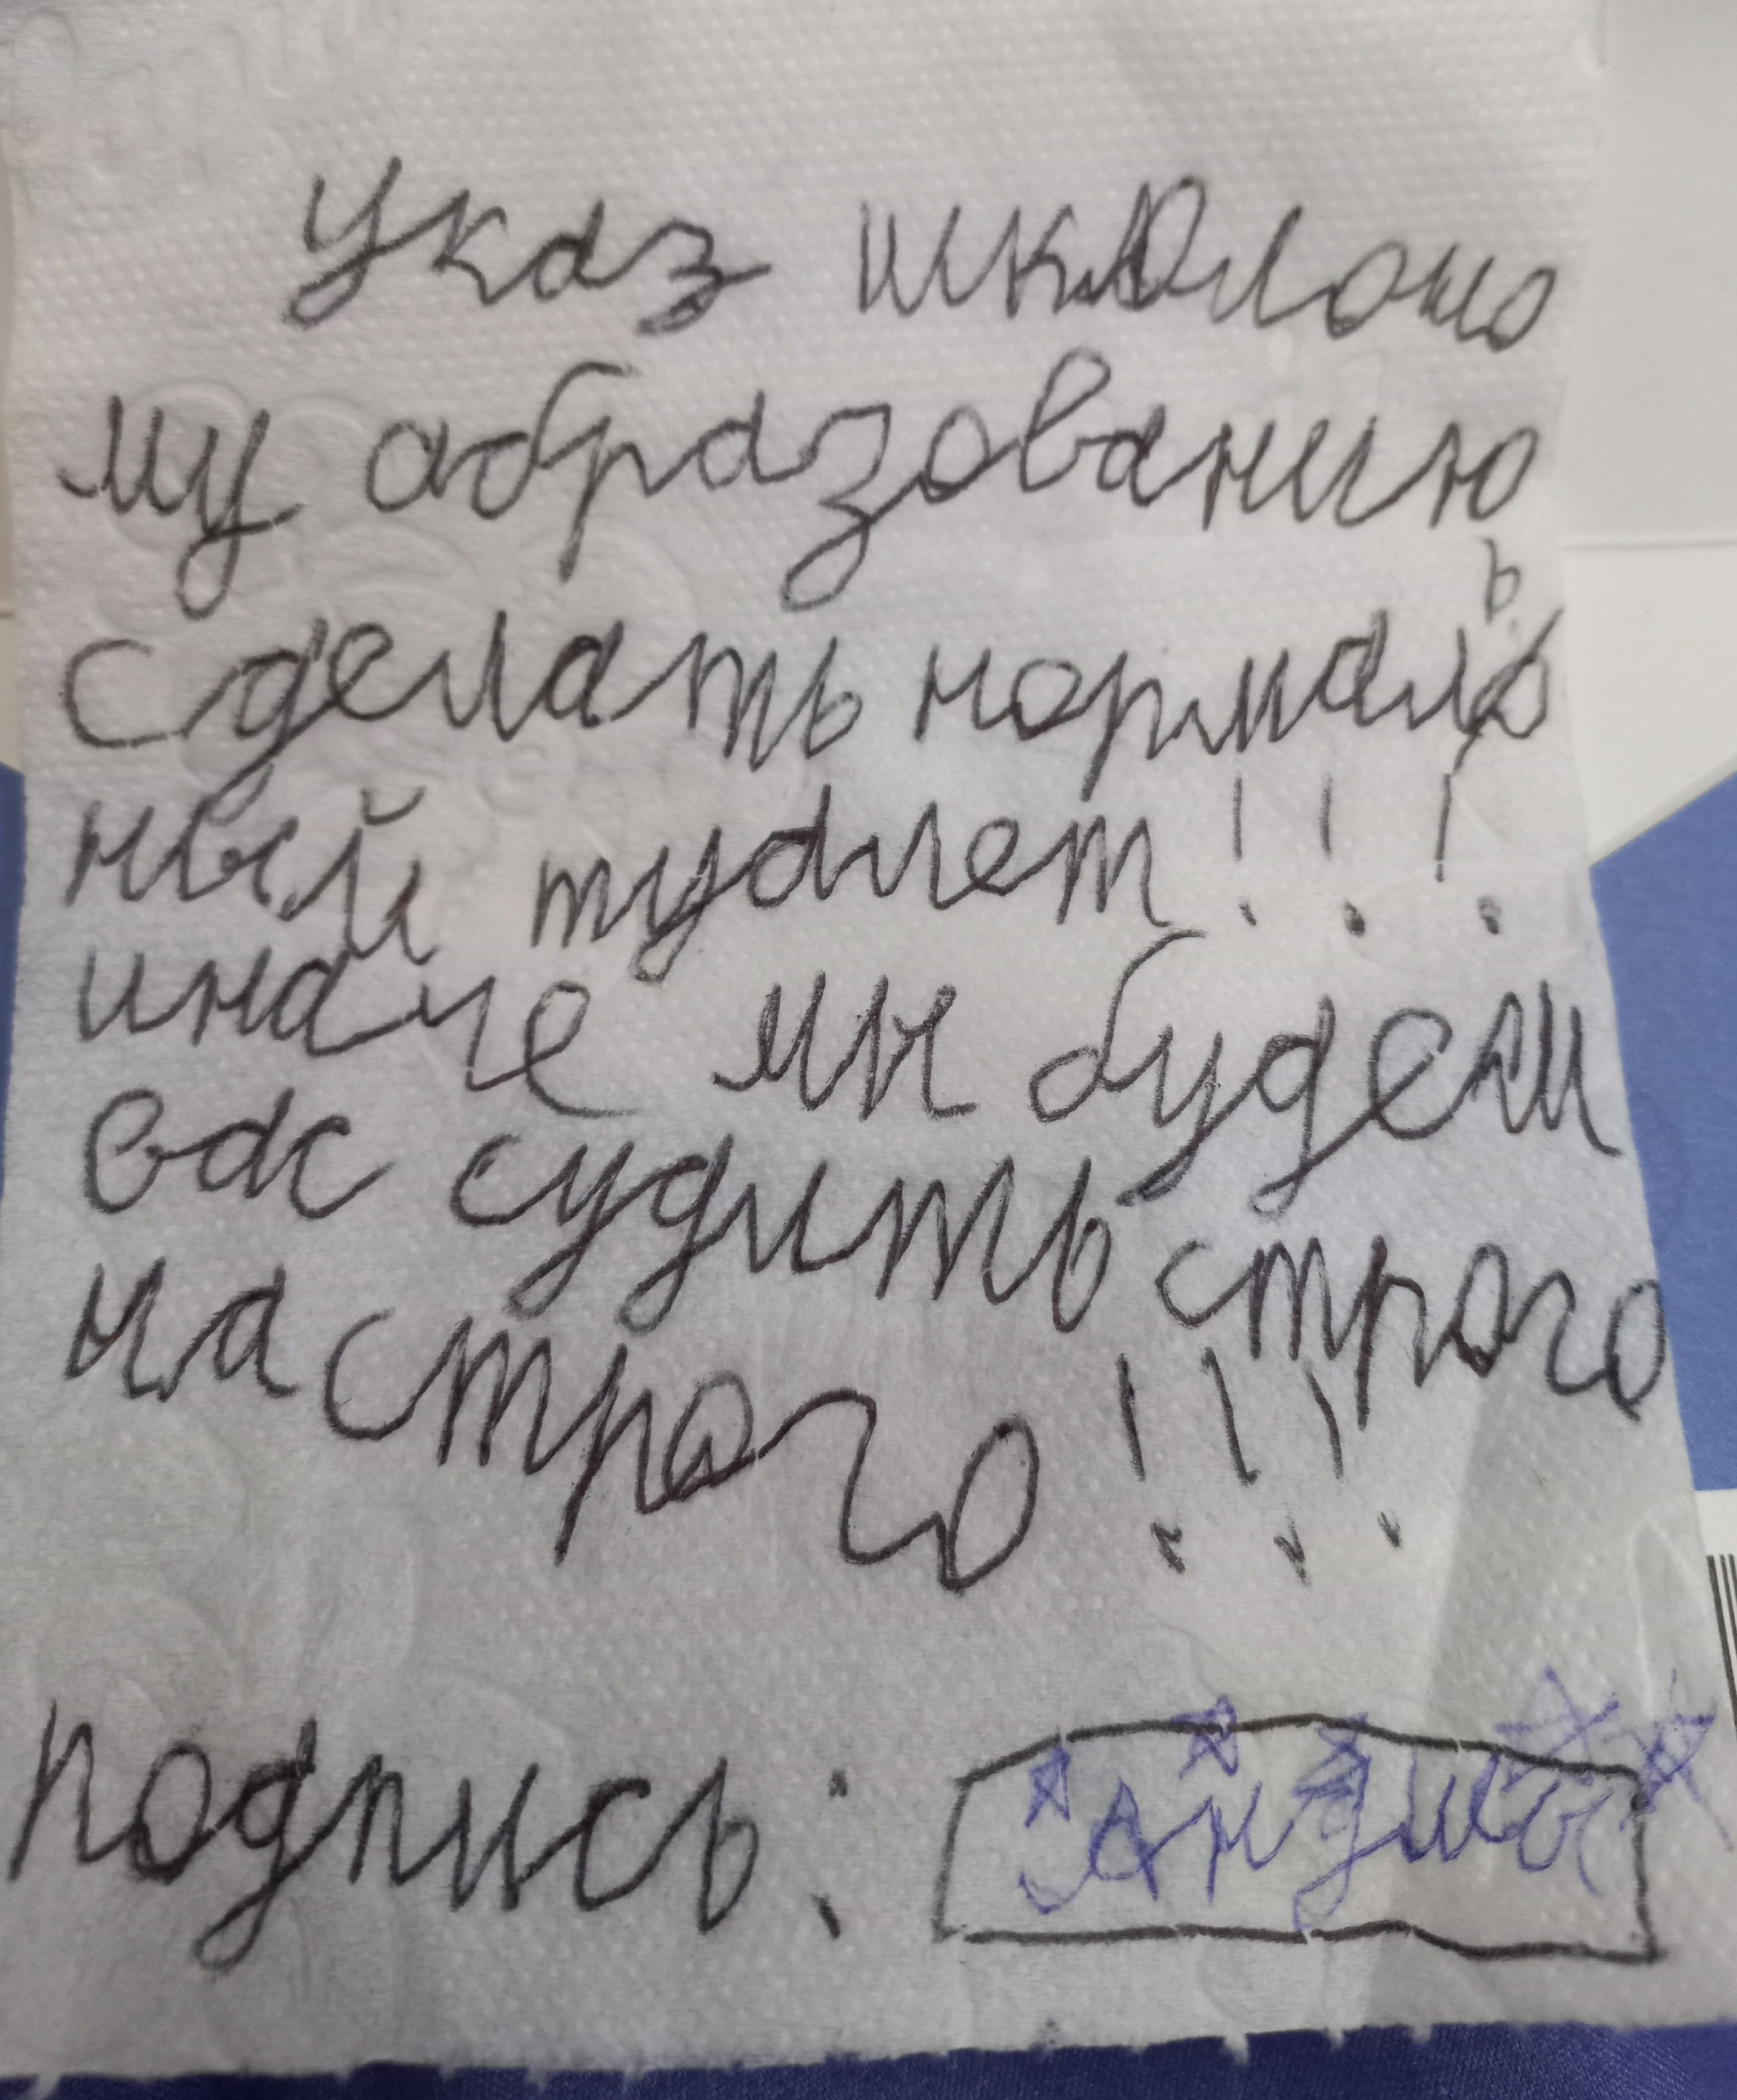 Указ школомо
му абразованию
сделать нормаль
ный туалет!!!
иначе мы будем
вас судить строго
настрого!!!
подпись: